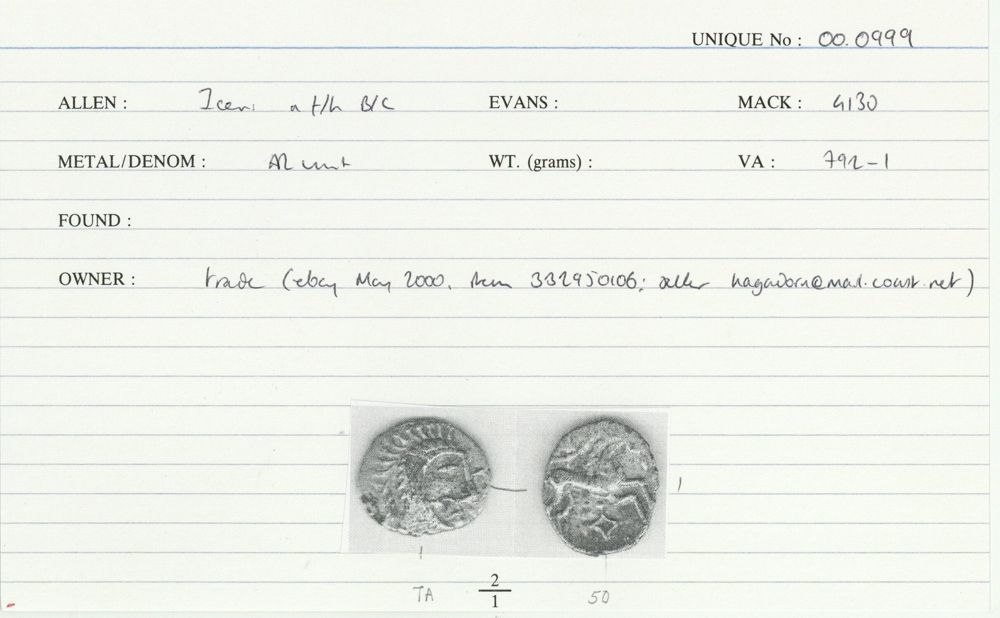 UNIQUE No : 00.0999
ALLEN : Iceni a f/h B/C EVANS : MACK : 4130
METAL/DENOM : AR unit WT. (grams) : VA : 792-1
FOUND :
OWNER : trade (ebay May 2000, item 332950106; seller hagadorn@mail.coast.net)
1
1
TA 2/1 50